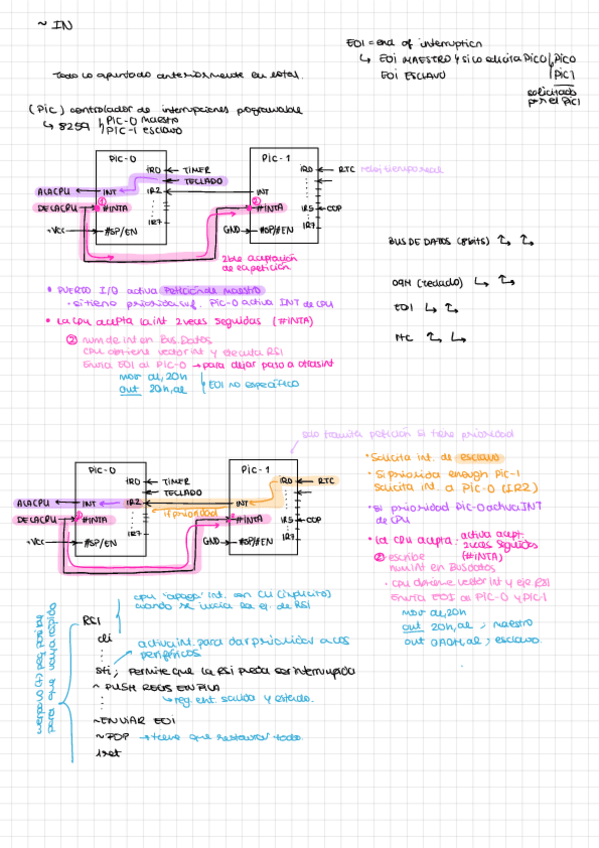 ~ IN
EOI = end of interruption
↳ EOI MAESTRO y si lo solicita PIC0 | PIC0
EOI ESCLAVO | PIC1
solicitado
por el PIC1
Todo lo apuntado anteriormente en total.
(PIC) controlador de interrupciones programable
↳ 8259 | PIC-0 maestro
PIC-1 esclavo
PIC-0
IR0 ← TIMER
← TECLADO
A LA CPU ← INT
IR2
DE LA CPU → #INTA
IR7
+Vcc → #SP/EN
PIC-1
IR0 ← RTC reloj tiempo real
INT
#INTA
IR5 ← COP
IR7
GND → #SP/#EN
2 ble aceptación
de la petición
BUS DE DATOS (8 bits)
09H (teclado)
EOI
• PUERTO I/O activa Petición de maestro
- si tiene prioridad suf. PIC-0 activa INT de CPU
• La cpu acepta la int 2 veces seguidas (#INTA)
② num de int en Bus Datos
CPU obtiene vector int y ejecuta RSI
Envia EOI al PIC-0 → para dejar paso a otras int
mov al, 20h
out 20h, al
EOI no específico
solo tramita petición si tiene prioridad
PIC-0
IR0 ← TIMER
← TECLADO
A LA CPU ← INT
IR2
if prioridad
DE LA CPU → #INTA
IR7
+Vcc → #SP/EN
PIC-1
IR0 ← RTC
INT
#INTA
IR5 ← COP
IR7
GND → #SP/#EN
• Solicita int. de esclavo
• Si priorida enough PIC-1
solicita int. a PIC-0 (IR2)
• si prioridad PIC-0 activa INT
de CPU
• La CPU acepta. activa acept.
2 veces seguidas
(#INTA)
② escribe
num int en Bus datos
• cpu obtiene vector int y eje RSI
Envia EOI al PIC-0 y PIC-1
mov al, 20h
out 20h, al ; maestro
out 0A0H, al ; esclavo.
cpu "apaga" int. con CLI (implícito)
cuando se inicia la ej. de RSI
RSI
cli
activa int. para dar prioridad a los
periféricos
sti; Permite que la RSI pueda ser interrumpida
~ PUSH REGS EN PILA
↳ reg. ent. salida y estado.
~ ENVIAR EOI
~ POP → tiene que restaurar todo.
iret
para que vaya rápido